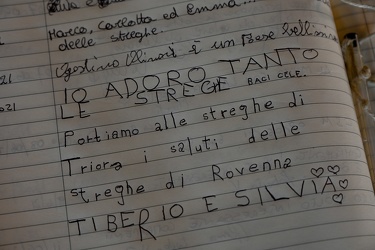 Marco, Carlotta ed Emma...
delle streghe.
21
Agostino è un Paese bellissimo
IO ADORO TANTO
LE STREGE BACI CELE.
2021
Portiamo alle streghe di
Triora i saluti delle
streghe di Rovenna
TIBERIO E SILVIA